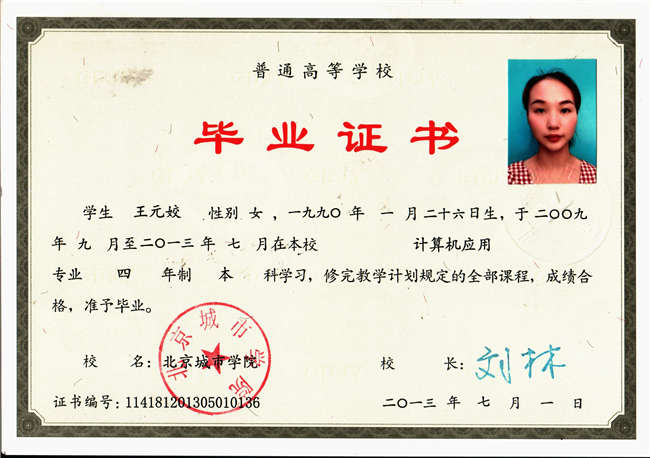 普通高等学校
毕业证书
学生 王元姣 性别 女 ，一九九〇 年 一 月二十六日生，于二〇〇九
年 九 月至二〇一三 年 七 月在本校 计算机应用
专业 四 年制 本 科学习，修完教学计划规定的全部课程，成绩合
格，准予毕业。
北京城市学院
校 名：北京城市学院 校 长：刘林
证书编号：114181201305010136 二〇一三 年 七 月 一 日